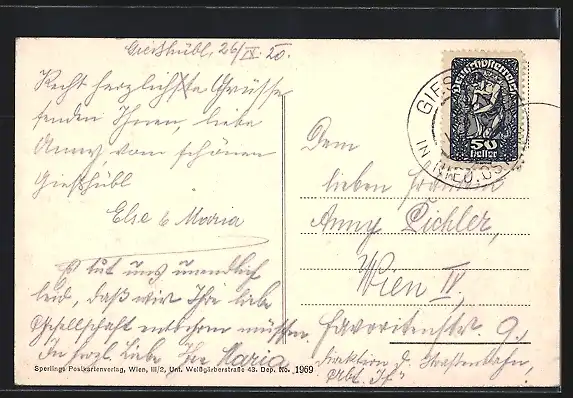 Gießhübl, 26/IX. 20.
Recht herzlichste Grüsse
senden Ihnen, liebe
Anny, vom schönen
Gießhübl
Else & Maria
Es tut uns unendlich
leid, daß wir Ihre liebe
Gesellschaft entbehren müssen.
In herzl. Liebe, Ihre Maria
Sperlings Postkartenverlag, Wien, III/2, Unt. Weißgärberstraße 43. Dep. No. 1969
Deutschösterreich
50
Heller
GIES
IN NIED. ÖST
Dem
lieben Fräulein
Anny Pichler,
Wien IV,
Favoritenstr. 9,
Direktion d. Straßenbahn,